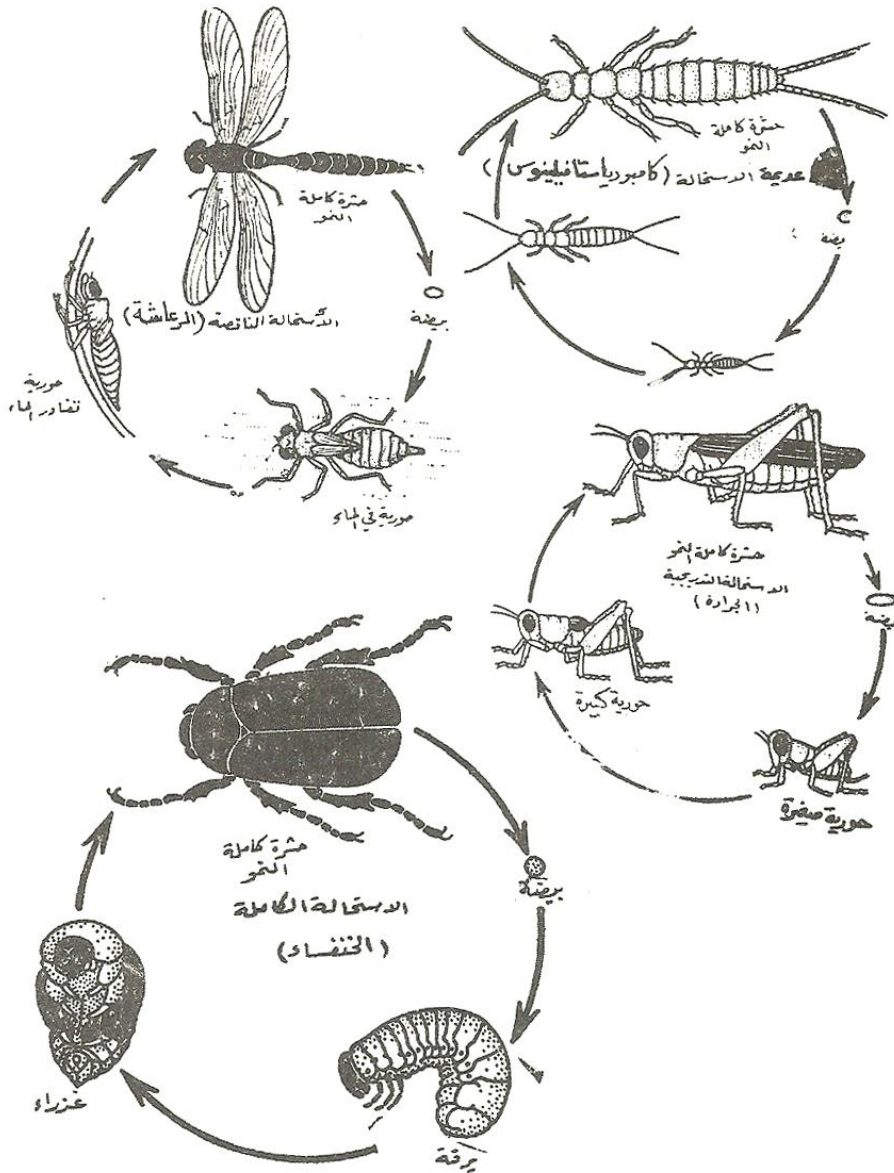 حشرة كاملة
النمو
عديمة الاستحالة (كامبوديا ستافيلينوس)
بيضة
حشرة كاملة
النمو
الاستحالة الناقصة (الرعاشة)
بيضة
حورية
تغادر الماء
حورية في الماء
حشرة كاملة النمو
الاستحالة التدريجية
(الجرادة)
بيضة
حورية كبيرة
حورية صغيرة
حشرة كاملة
النمو
الاستحالة الكاملة
(الخنفساء)
بيضة
عزراء
يرقة